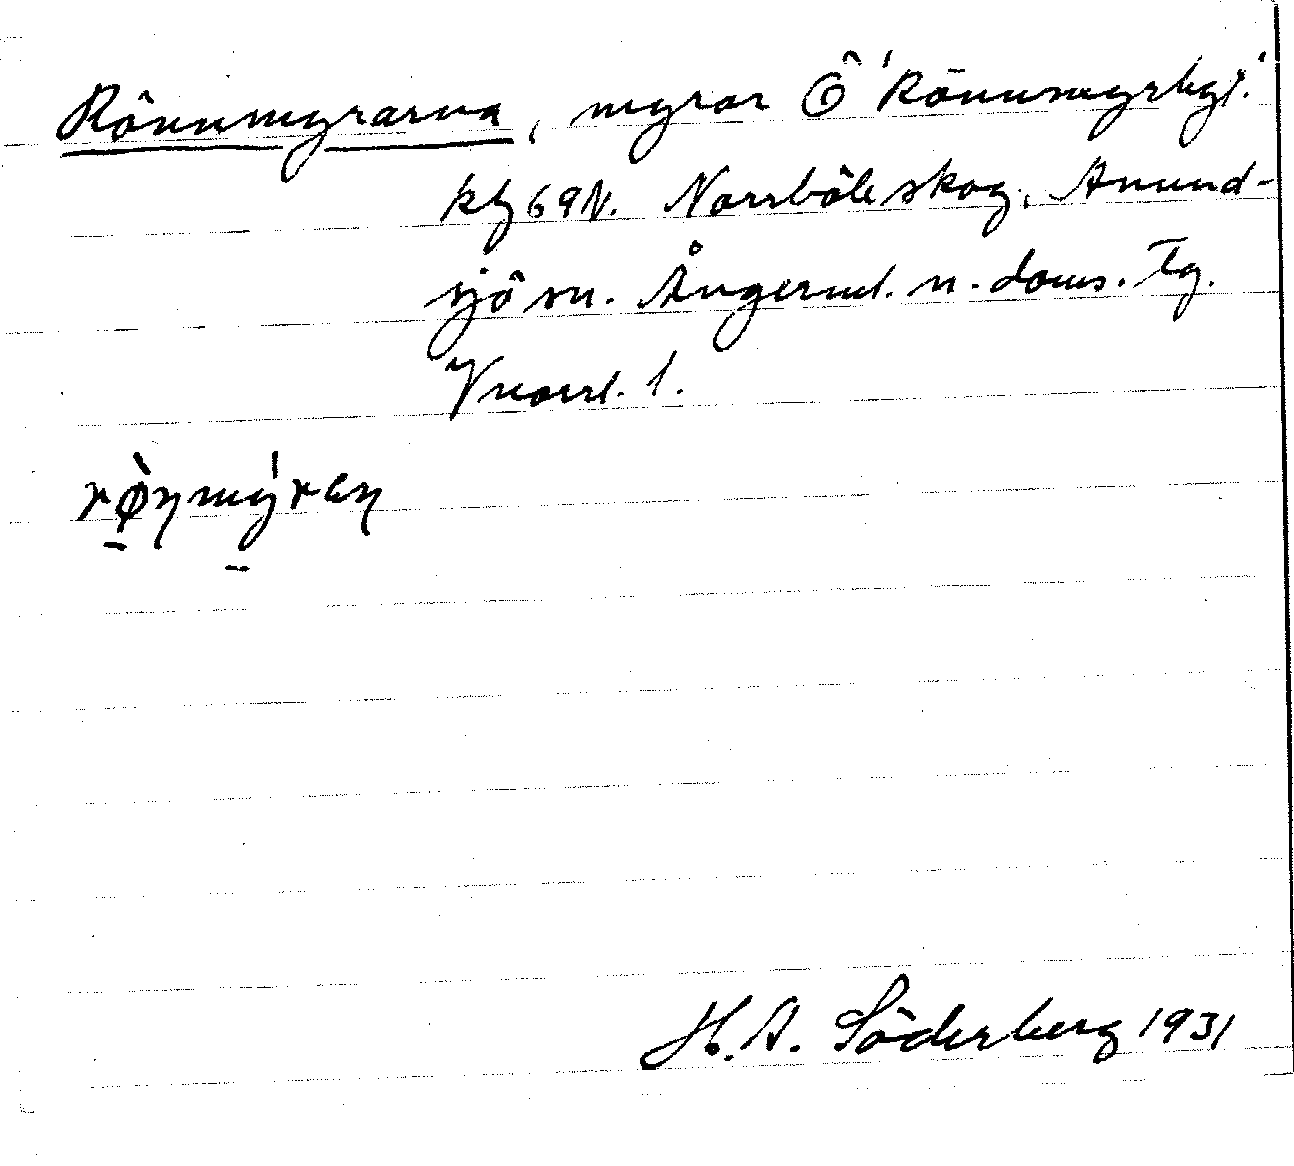 Rönnmyrarna, myror Ö 'Rönnmyrbgt.'
69N. Norrböleskog, Anund-
sjö sn. Ångerml. n. doms. Tg.
Vnorrl. l.
rø̀ṇmýren
H. A. Söderberg 1931